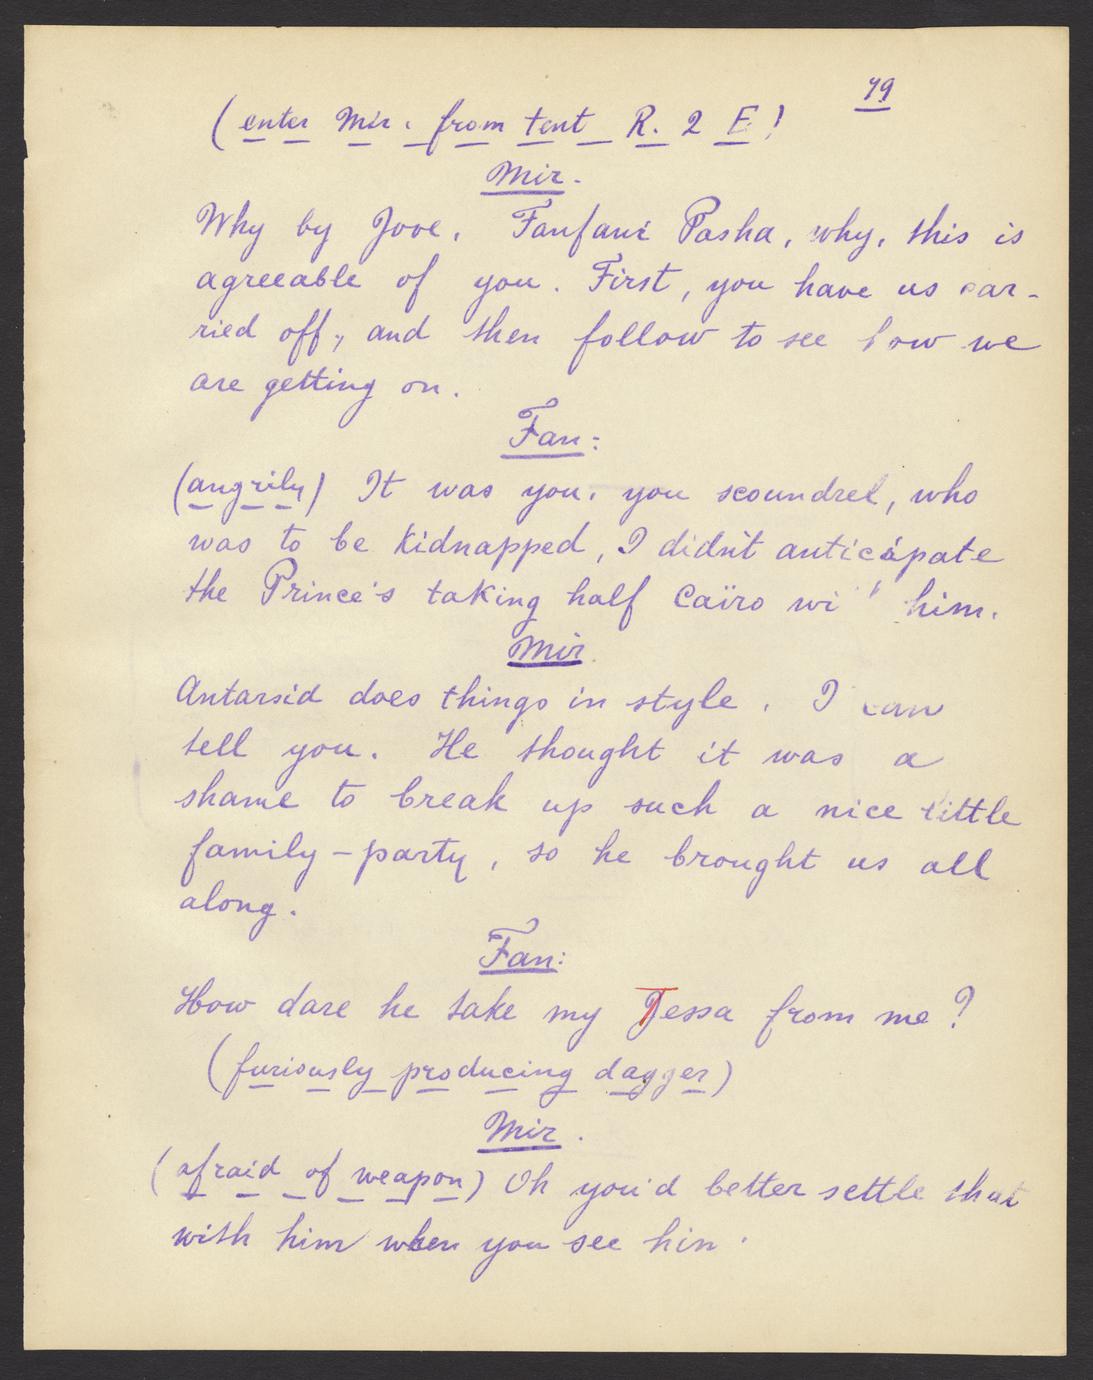 79
(enter Mir. from tent R. 2 E)
Mir.
Why by Jove, Fanfani Pasha, why, this is
agreeable of you. First, you have us car-
ried off, and then follow to see how we
are getting on.
Fan:
(angrily) It was you, you scoundrel, who
was to be kidnapped, I didn't anticipate
the Prince's taking half Caïro wi him.
Mir
Antarsid does things in style, I can
tell you. He thought it was a
shame to break up such a nice little
family-party, so he brought us all
along.
Fan:
How dare he take my Tessa from me?
(furiously producing dagger)
Mir.
(afraid of weapon) Oh you'd better settle that
with him when you see him.